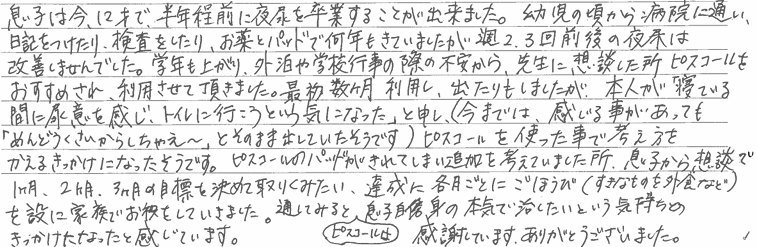 息子は今、12才で、半年程前に夜尿を卒業することが出来ました。幼児の頃から病院に通い、
日記をつけたり、検査をしたり、お薬とパッドで何年もきていましたが週2.3回前後の夜尿は
改善しませんでした。学年も上がり、外泊や学校行事の際の不安から、先生に想談した所ピスコールを
おすすめされ、利用させて頂きました。最初数ヶ月利用し、出たりもしましたが、本人が「寝ている
間に尿意を感じ、トイレに行こうという気になった」と申し、(今までは、感じる事があっても
「めんどうくさいからしちゃえ〜」とそのまま出していたそうです)ピスコールを使った事で考え方を
かえるきっかけになったそうです。ピスコールのパッドがきれてしまい追加を考えていました所、息子から想談で
1ヶ月、2ヶ月、3ヶ月の目標を決めて取りくみたい、達成に各月ごとにごほうび(すきなものを外食など)
を設に家族でお祝をしていきました。通してみると息子自身の本気で治したいという気持ちの
きっかけになったと感じています。ピスコールには感謝しています。ありがとうございました。